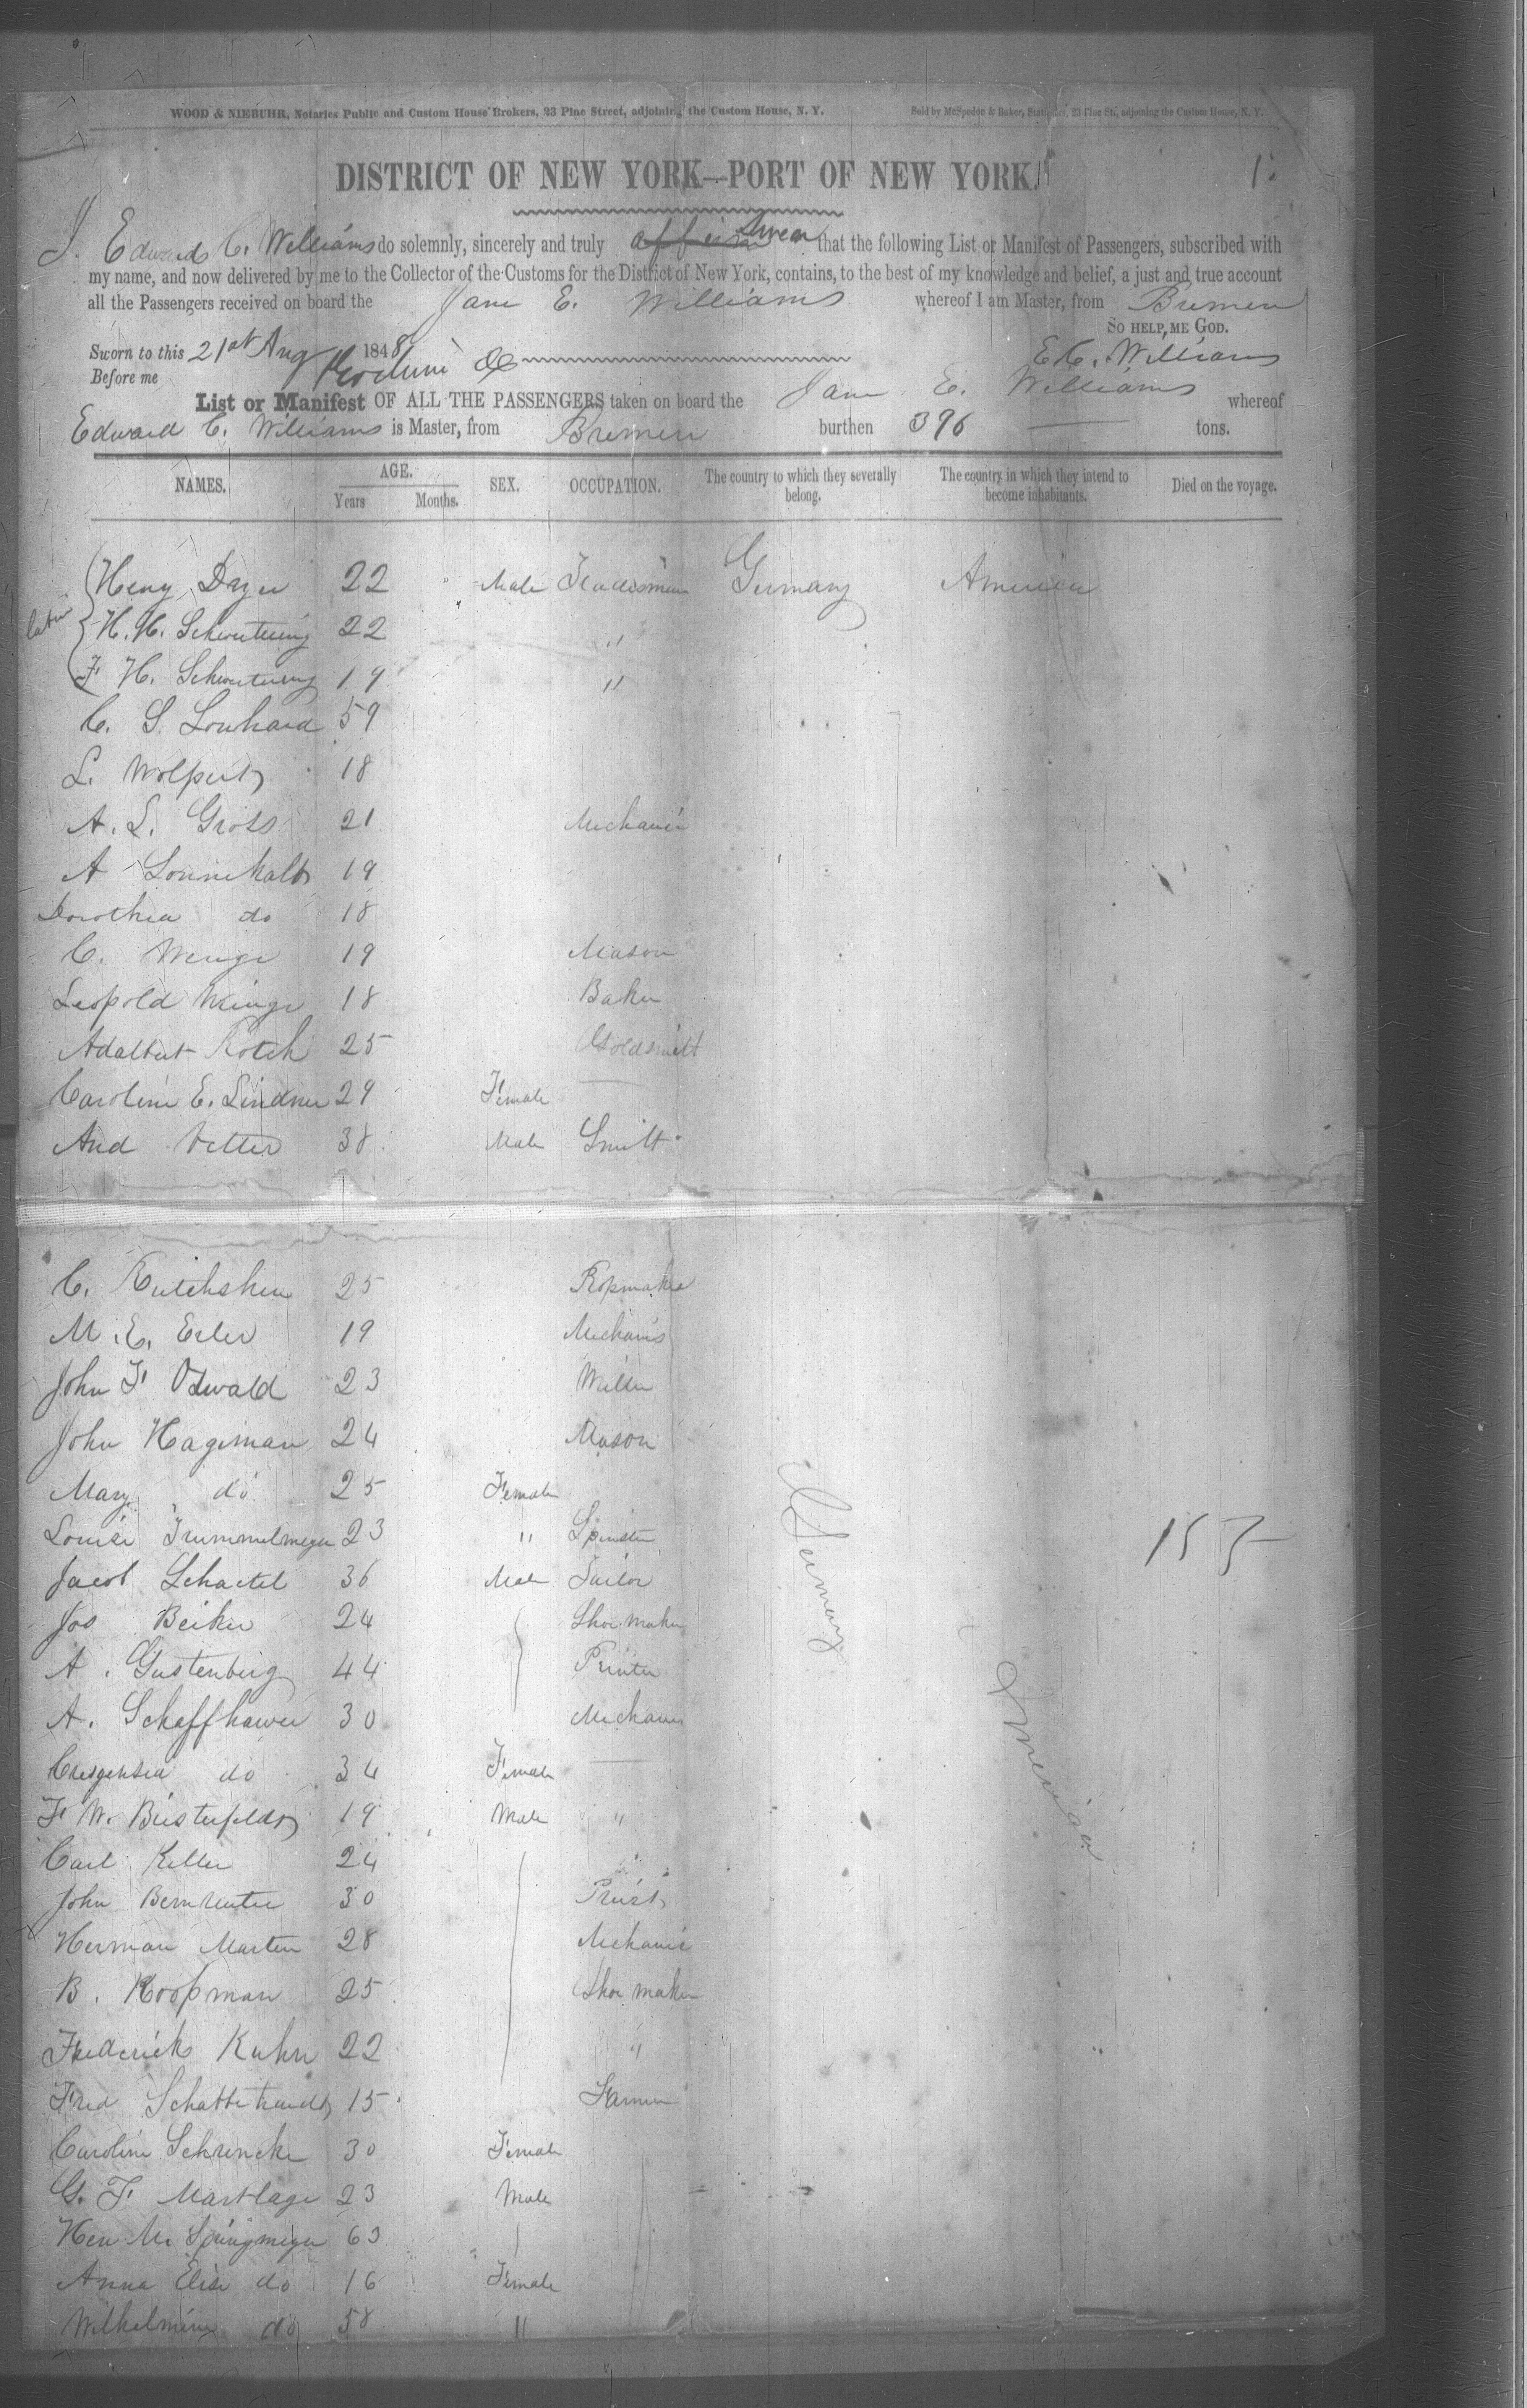 WOOD & NIEBUHR, Notaries Public and Custom House Brokers, 23 Pine Street, adjoining the Custom House, N. Y. Sold by McSpedon & Baker, Stationers, 23 Pine St., adjoining the Custom House, N. Y.
DISTRICT OF NEW YORK—PORT OF NEW YORK. 1.
I. Edward C. Williams do solemnly, sincerely and truly swear that the following List or Manifest of Passengers, subscribed with
my name, and now delivered by me to the Collector of the Customs for the District of New York, contains, to the best of my knowledge and belief, a just and true account
all the Passengers received on board the Jane E. Williams whereof I am Master, from Bremen
SO HELP ME GOD.
Sworn to this 21st Aug 1848 E C. Williams
Before me
List or Manifest OF ALL THE PASSENGERS taken on board the Jane E. Williams whereof
Edward C. Williams is Master, from Bremen burthen 396 tons.
NAMES. AGE. Years Months. SEX. OCCUPATION. The country to which they severally belong. The country in which they intend to become inhabitants. Died on the voyage.
Heny Dryer 22 Male Tradesman Germany America
H. H. Schwetering 22 "
F H. Schwetering 19 "
C. S. Lonhard 59
L. Wolpert 18
A. L. Gross 21 Mechanic
A Sonnekalb 19
Dorothea do 18
C. Wenge 19 Mason
Leopold Wenge 18 Baker
Adalbert Kotch 25 Goldsmitt
Caroline E. Lindner 29 Female
And Vetter 38 Male Smitt
C. 25 Ropmaker
M. E. Erler 19 Mechanic
John F Oswald 23 Miller
John Hageman 24 Mason
Mary do 25 Female
Louise Trummelmeyer 23 " Spinster
Jacob Schactel 36 Male Tailor
Jos Beiker 24 Shoe maker
A. Gustenberg 44 Printer
A. Schaffhawer 30 Mechanic
Cresgensia do 34 Female
F W. Busterfeld 19 Male "
Carl Keller 24 "
John Bernreuter 30 Priest
Herman Marten 28 Mechanic
B. Koopman 25 Shoe maker
Frederick Kuhn 22 "
Fred 15 Farmer
Caroline Schrencke 30 Female
G. F Martlage 23 Male
Hen M. Springmeyer 63
Anna Elise do 16 Female
Wilhelmine do 58 "
Germany
America